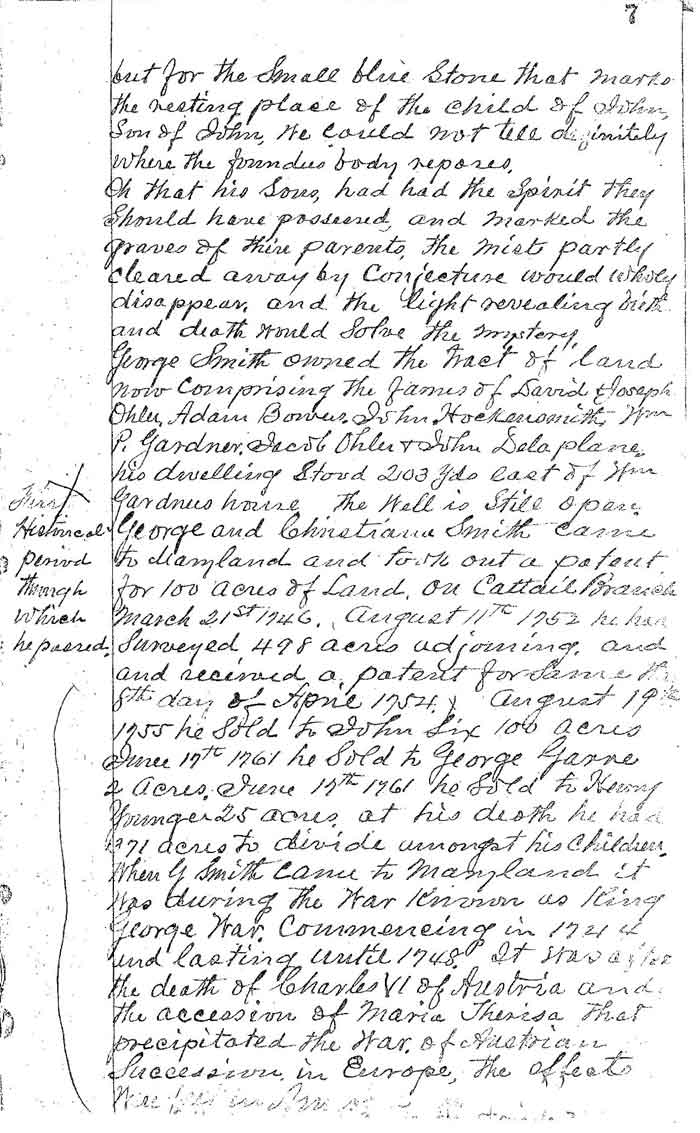 7
but for the Small blue Stone that marks
the resting place of the child of John,
Son of John, We could not tell definitely
where the founders body reposes.
Oh that his Sons, had had the Spirit they
Should have possessed, and marked the
graves of thire parents, the mist partly
cleared away by Conjecture would wholy
disappear, and the light revealing birth
and death would Solve the mystery,
George Smith owned the tract of land
now Comprising the farms of David & Joseph
Ohler, Adam Bower, John Hockensmith, Wm
P. Gardner, Jacob Ohler & John Delaplane,
his dwelling Stood 203 yds east of Wm
Gardners house The Well is Still open.
First
Historical
period
through
which
he passed.
George and Christiana Smith came
to Maryland and took out a patent
for 100 acres of Land, on Cattail Branch
March 21st 1746. August 11th 1752 he had
Surveyed 498 acres adjoining, and
and received a patent for Same the
8th day of April 1754. August 19th
1755 he Sold to John Six 100 acres
June 17th 1761 he Sold to George
2 acres, June 17th 1761 he Sold to Henry
Younger 25 acres, at his death he had
371 acres to divide amongst his Children,
When G Smith Came to Maryland it
was during the War Known as King
George War, Commencing in 1744
and lasting until 1748. It was after
the death of Charles VI of Austria and
the accession of Maria Theresa that
precipitated the War, of Austrian
Succession in Europe, the effects